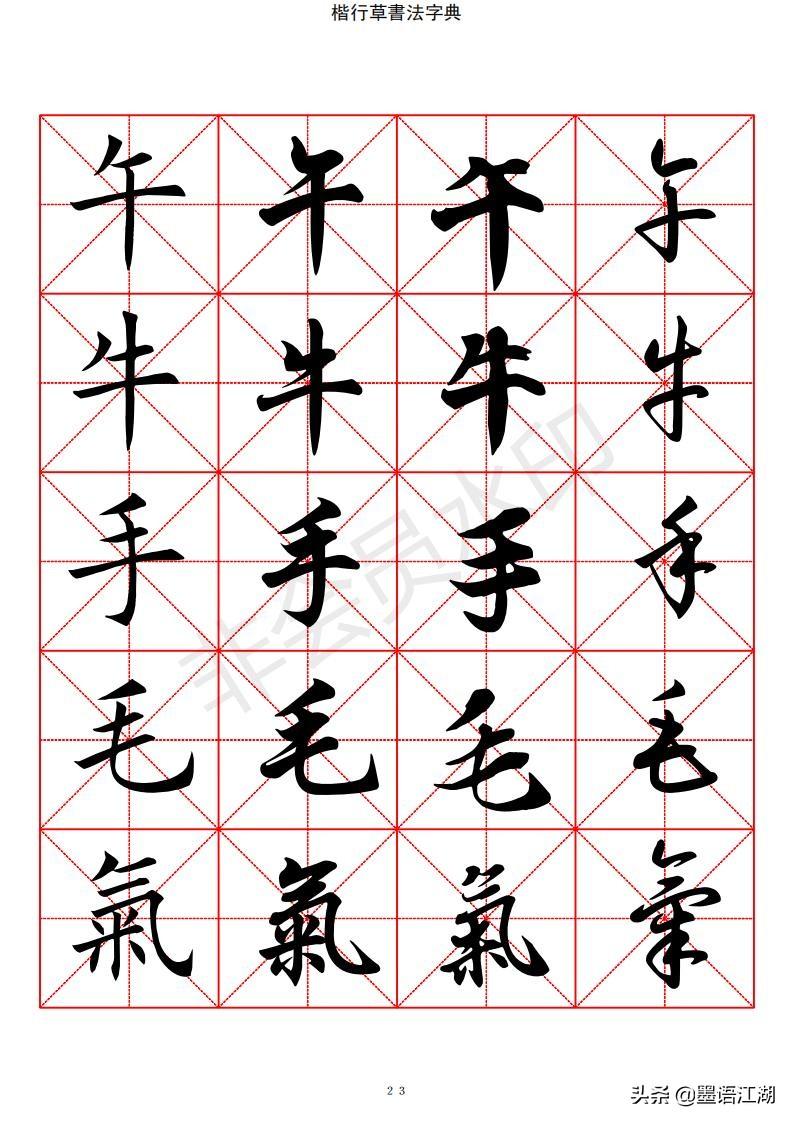 楷行草書法字典
午 午 午 午
牛 牛 牛 牛
手 手 手 手
毛 毛 毛 毛
氣 氣 氣 氣
非会员水印
23
头条 @墨语江湖